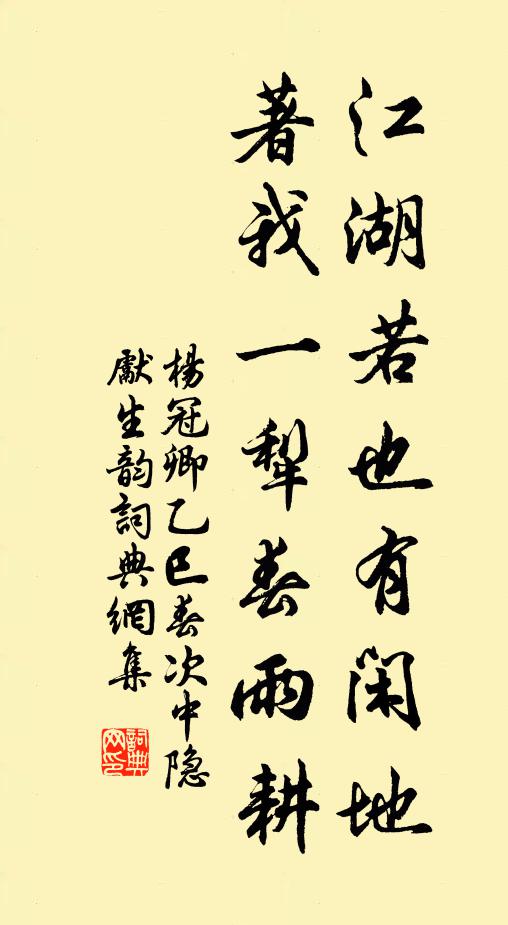 江湖若也有闲地
著我一犁春雨耕
楊冠卿乙巳春次中隐
獻生韵詞典網集
詞典网印